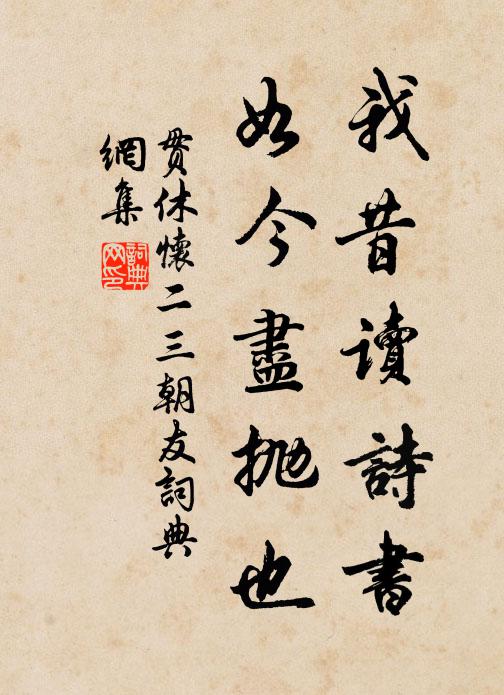 我昔讀詩書
如今盡抛也
貫休懷二三朝友詞典
網集
詞典
网印